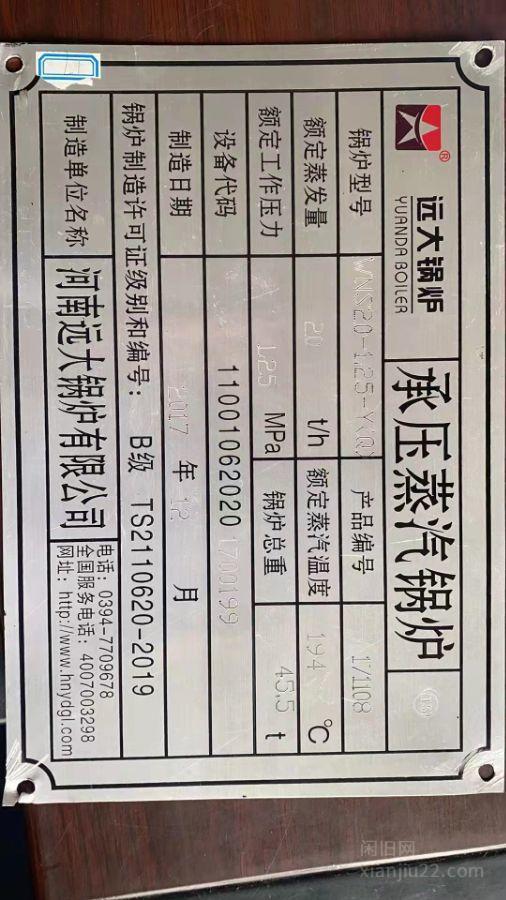 远大锅炉
YUANDA BOILER
®
承压蒸汽锅炉
锅炉型号 WNS20-1.25-Y(Q) 产品编号 171108
额定蒸发量 20 t/h 额定蒸汽温度 194 ℃
额定工作压力 1.25 MPa 锅炉总重 45.5 t
设备代码 110010620201700199
制造日期 2017 年 12 月
锅炉制造许可证级别和编号: B级 TS2110620-2019
制造单位名称 河南远大锅炉有限公司
电话: 0394-7709678
全国服务电话: 4007003298
网址: http://www.hnydgl.com
闲旧网
xianjiu22.com